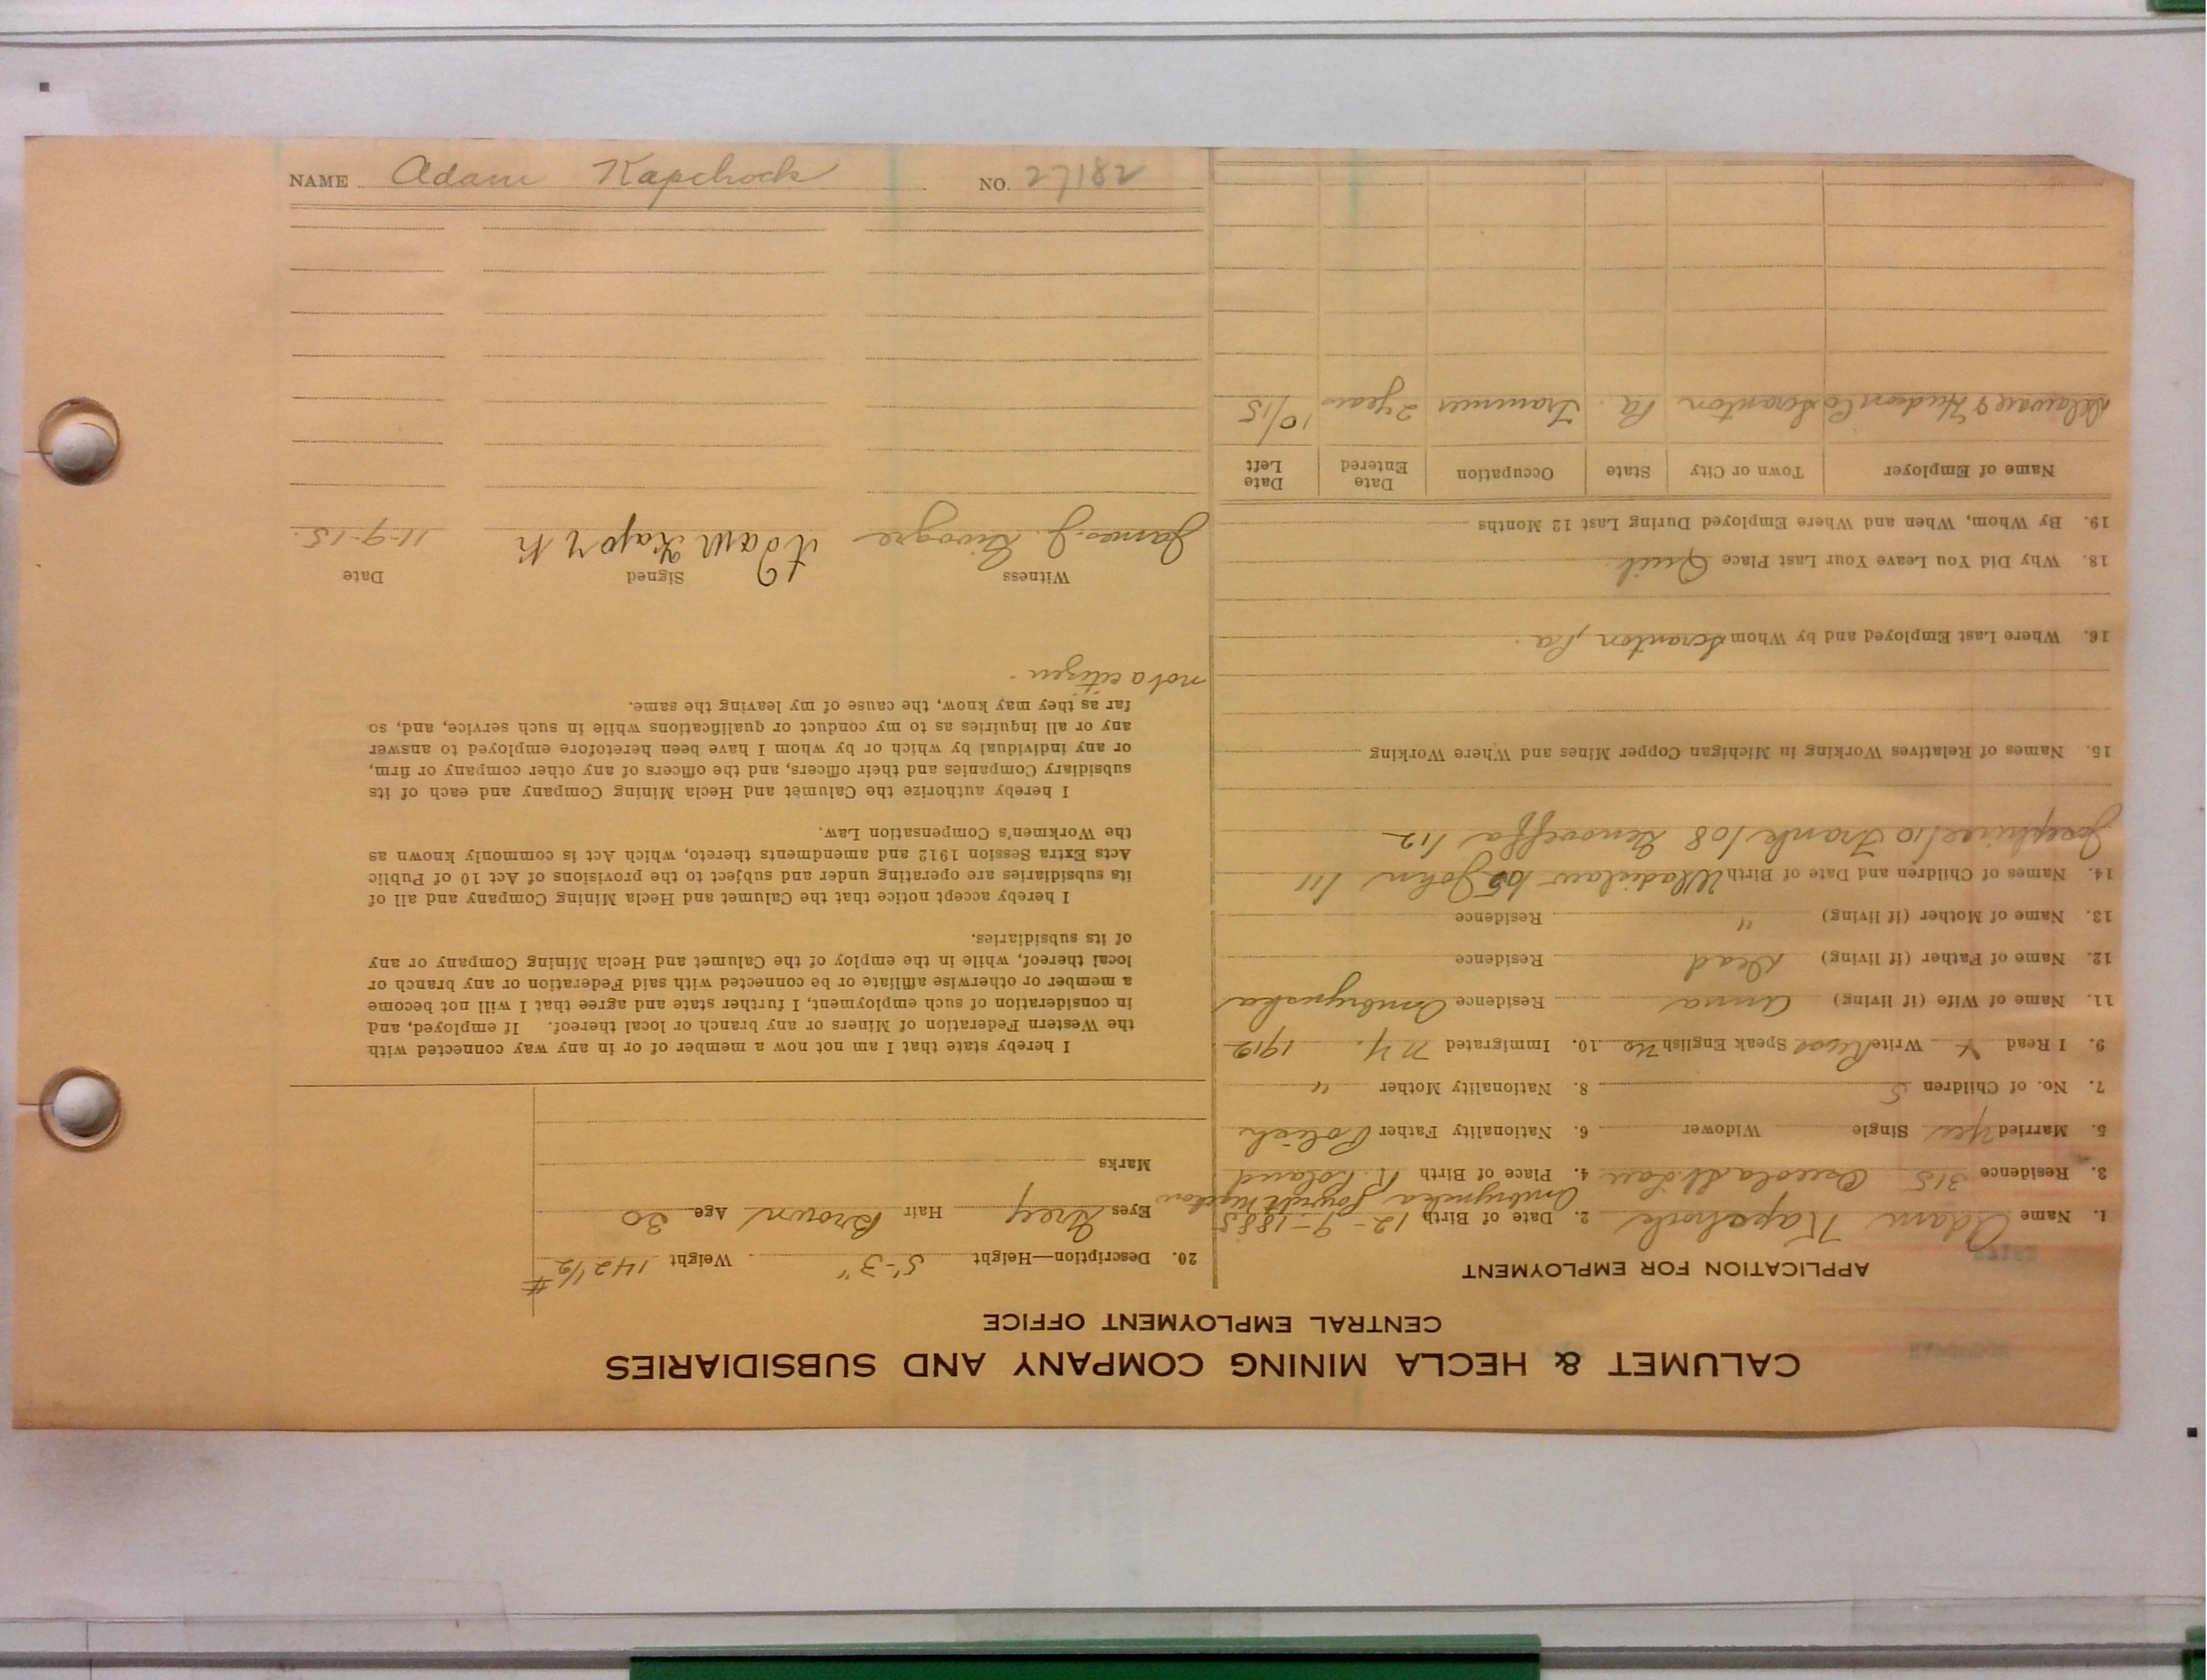 CALUMET & HECLA MINING COMPANY AND SUBSIDIARIES
CENTRAL EMPLOYMENT OFFICE
APPLICATION FOR EMPLOYMENT
1. Name Adam Kapchock 2. Date of Birth 12-9-1885
3. Residence 315 Osceola St. Lau 4. Place of Birth R. Poland
5. Married Yes Single Widower 6. Nationality Father Polish
7. No. of Children 5 8. Nationality Mother "
9. I Read X Write Speak English No 10. Immigrated N.Y. 1912
11. Name of Wife (if living) Anna Residence
12. Name of Father (if living) Dead Residence
13. Name of Mother (if living) " Residence
14. Names of Children and Date of Birth Wladislaw 105 John 111
Josephine 110 Frank 108 Genoveffa 112
15. Names of Relatives Working in Michigan Copper Mines and Where Working
16. Where Last Employed and by Whom Scranton, Pa.
18. Why Did You Leave Your Last Place Quit.
19. By Whom, When and Where Employed During Last 12 Months
Name of Employer Town or City State Occupation Date Entered Date Left
Delaware & Hudson Co Scranton Pa. Trammer 2 years 10/15
20. Description—Height 5'-3" Weight 142 1/2 #
Eyes Grey Hair Brown Age 30
Marks
I hereby state that I am not now a member of or in any way connected with
the Western Federation of Miners or any branch or local thereof. If employed, and
in consideration of such employment, I further state and agree that I will not become
a member or otherwise affiliate or be connected with said Federation or any branch or
local thereof, while in the employ of the Calumet and Hecla Mining Company or any
of its subsidiaries.
I hereby accept notice that the Calumet and Hecla Mining Company and all of
its subsidiaries are operating under and subject to the provisions of Act 10 of Public
Acts Extra Session 1912 and amendments thereto, which Act is commonly known as
the Workmen's Compensation Law.
I hereby authorize the Calumet and Hecla Mining Company and each of its
subsidiary Companies and their officers, and the officers of any other company or firm,
or any individual by which or by whom I have been heretofore employed to answer
any or all inquiries as to my conduct or qualifications while in such service, and, so
far as they may know, the cause of my leaving the same.
not a citizen.
Witness Signed Date
James J. Adam 11-9-15.
NAME Adam Kapchock NO. 27182